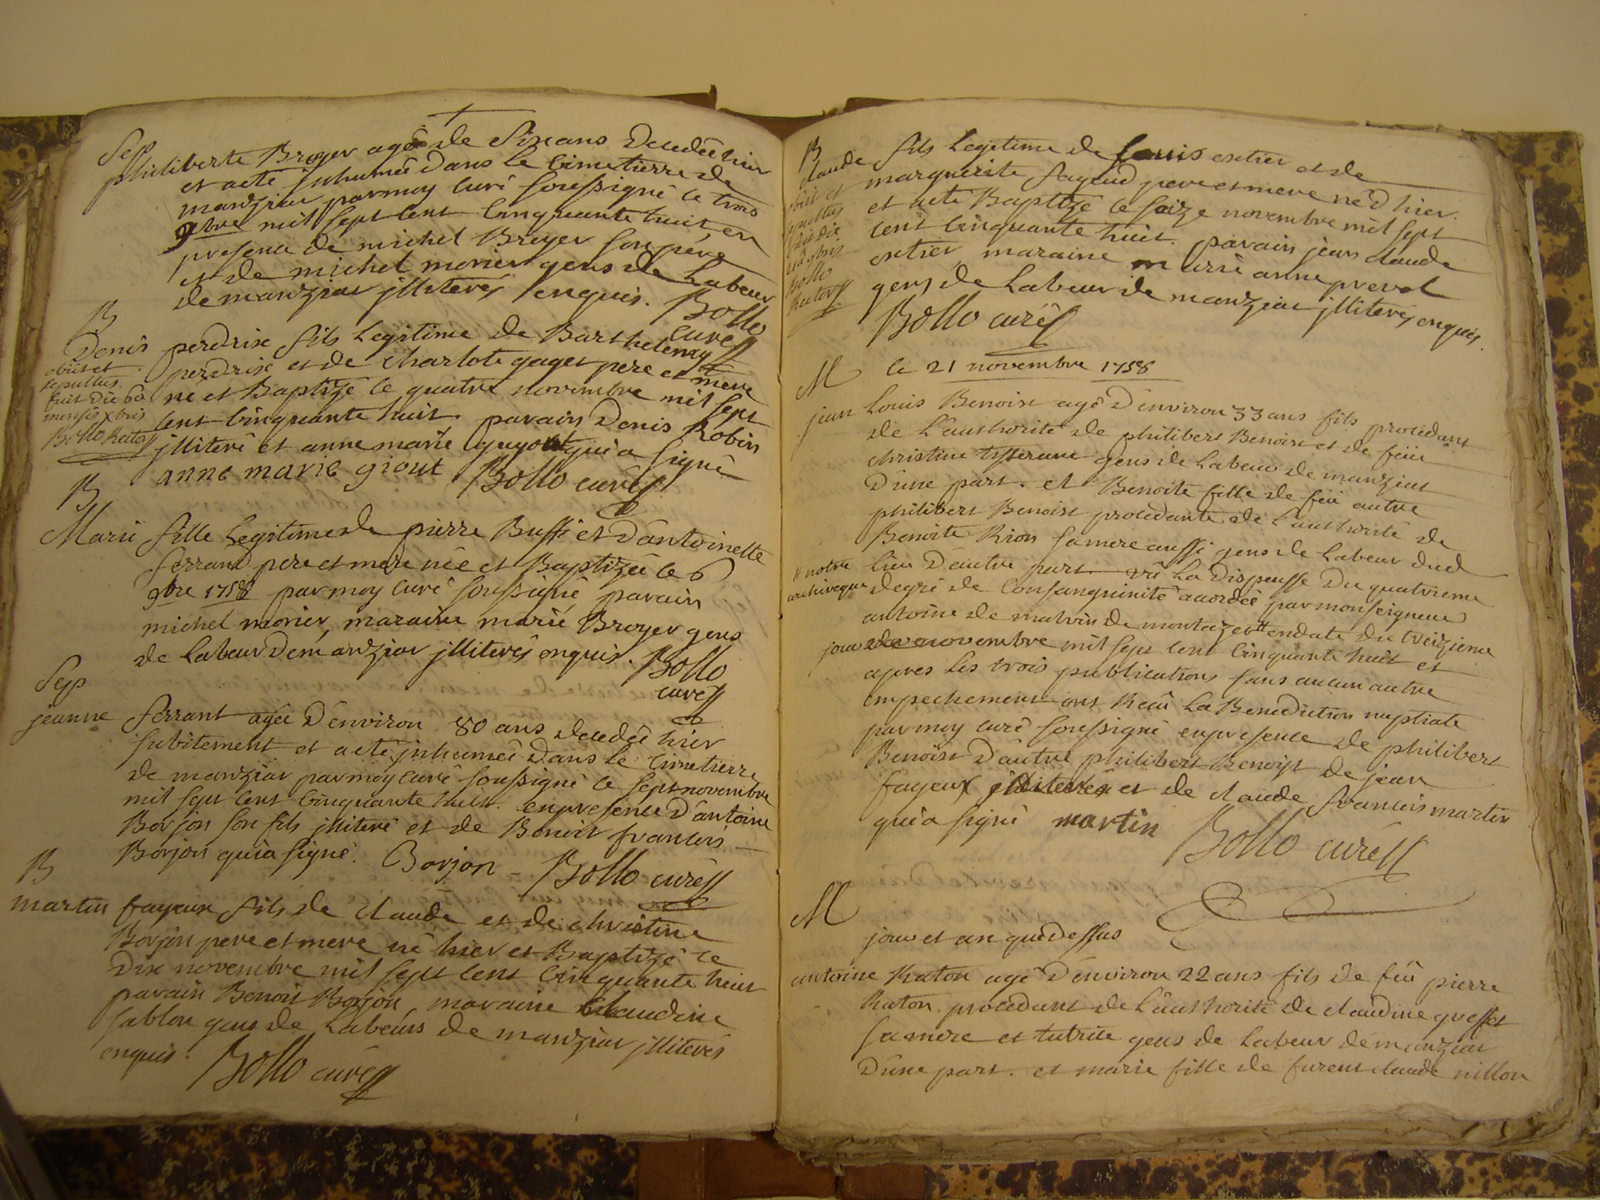 Sep
philiberte Broyer agée de six ans decedée hier
et acté inhumée dans le cimetierre de
manziat par moy curé soussigné ce trois
9bre mil sept cent cinquante huit en
presence de michel Broyer son père
et de michel morier gens de Labeur
de manziat jlliterés enquis. Bollo
curé
B
Denis perdrix fils Legitime de Barthelemy
obiit et
perdrix et de charlote gaget pere et mere
sepultus
né et Baptizé ce quatre novembre mil sept
fuit die 6a
mensis xbris
cent cinquante huit parain Denis Robin
Bollo Rator
jlliteré et anne marie guyout qui a signé
anne marie giout Bollo curé
B
Marie fille Legitime de pierre Buffi et d'antoinette
ferrand pere et mere née et Baptizée ce 6
9bre 1758 par moy curé soussigné parain
michel morier, maraine marie Broyer gens
de Labeur de manziat jlliterés enquis. Bollo
curé
Sep
jeanne ferrant agée d'environ 80 ans decedée hier
subitement et acté inhumée dans le cimetierre
de manziat par moy curé soussigné ce sept novembre
mil sept cent cinquante huit. en presence d'antoine
Borjon son fils jlliteré et de Benoit francois
Borjon qui a signé. Borjon Bollo curé
B
martin fayeux fils de claude et de christine
Borjon pere et mere né hier et Baptizé ce
Dix novembre mil sept cent cinquante huit
parain Benoit Borjon, maraine claudine
sablon gens de Labeurs de manziat jlliterés
enquis. Bollo curé
B
claude fils Legitime de Louis extier et de
obiit et
marguerite fayeud pere et mere né d'hier.
sepultus
et acté Baptizé ce saize novembre mil sept
fuit die
cent cinquante huit. parain jean claude
xbris
extier, maraine marie anne prevol
Bollo
Rator
gens de Labeur de manziat jlliterés enquis.
Bollo curé
M le 21 novembre 1758
jean Louis Benoist agé d'environ 33 ans fils procedant
de L'authorité de philibert Benoist et de feüe
christine tisserand gens de Labeur de manziat
d'une part. et Benoite fille de feü autre
philibert Benoist procedante de L'authorité de
Benoite Rion sa mere aussi gens de Labeur dud
lieu d'autre part vû La dispensse du quatrieme
notre
archiveque
degré de Consanguinité acordée par monseigneur
antoine de malvin de montazet en date du treizieme
jour de novembre mil sept cent cinquante huit et
apres les trois publications sans aucun autre
empechement ont Reçû La Benediction nuptiale
par moy curé soussigné en presence de philibert
Benoist d'autre philibert Benoist de jean
fayeux jlliterés et de claude francois martin
qui a signé martin Bollo curé
M
jour et an que dessus
antoine Raton agé d'environ 22 ans fils de feü pierre
Raton, procedant de L'authorité de claudine greffet
sa mere et tutrice gens de Labeur de manziat
d'une part. et marie fille de furent claude nillon